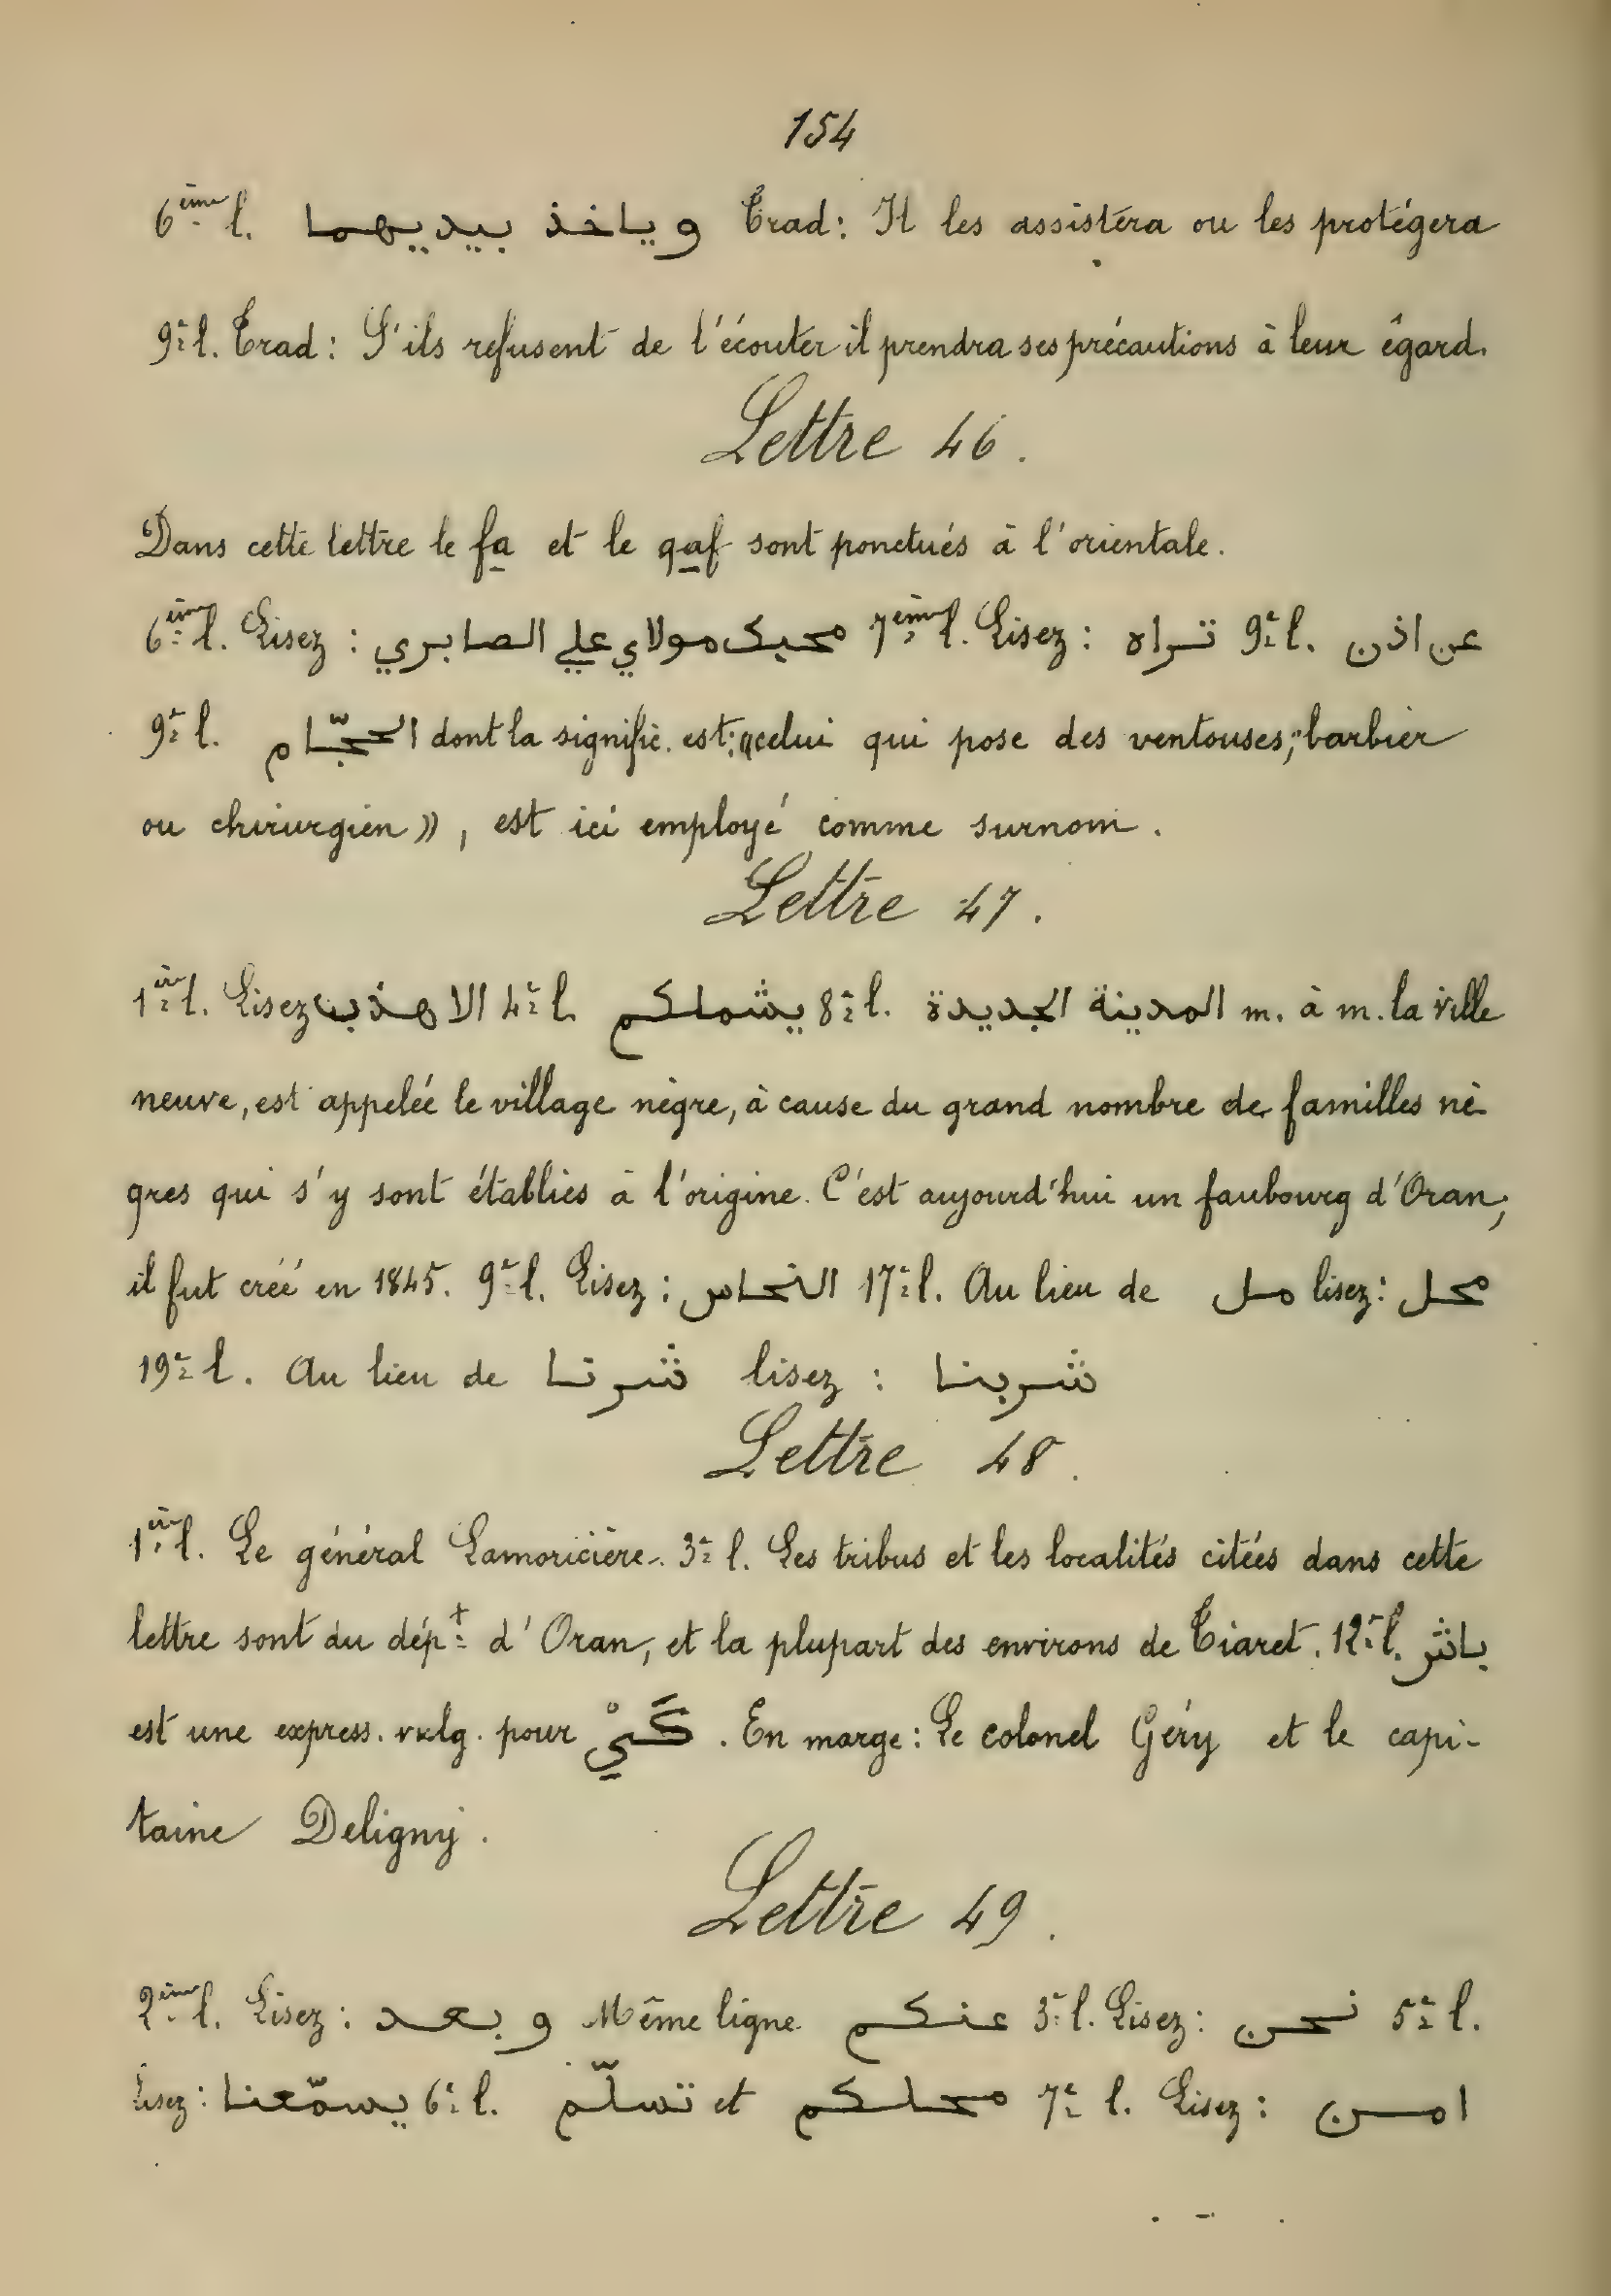 154
6ème l. وياخذ بيديهما Trad: Il les assistera ou les protégera
9è l. Trad: S'ils refusent de l'écouter il prendra ses précautions à leur égard.
Lettre 46.
Dans cette lettre le fa et le qaf sont ponctués à l'orientale.
6ème l. Lisez : محبك مولاي علي الصابري 7ème l. Lisez : تراه 9è l. عن اذن
9è l. الحجّام dont la signific. est: «celui qui pose des ventouses, barbier
ou chirurgien», est ici employé comme surnom.
Lettre 47.
1ère l. Lisez الاهذب 4è l. يشملكم 8è l. المدينة الجديدة m. à m. la ville
neuve, est appelée le village nègre, à cause du grand nombre de familles nè-
gres qui s'y sont établies à l'origine. C'est aujourd'hui un faubourg d'Oran,
il fut créé en 1845. 9è l. Lisez : النحاس 17è l. Au lieu de مل lisez : محل
19è l. Au lieu de شرنا lisez : شربنا
Lettre 48.
1ère l. Le général Lamoricière. 3è l. Les tribus et les localités citées dans cette
lettre sont du dépt d'Oran, et la plupart des environs de Tiaret. 12è l. باش
est une express. vulg. pour كَيْ. En marge : Le colonel Géry et le capi-
taine Deligny.
Lettre 49.
2ème l. Lisez : وبعد Même ligne عنكم 3è l. Lisez : نحن 5è l.
Lisez : يسمّعنا 6è l. تسلّم et محلكم 7è l. Lisez : امن